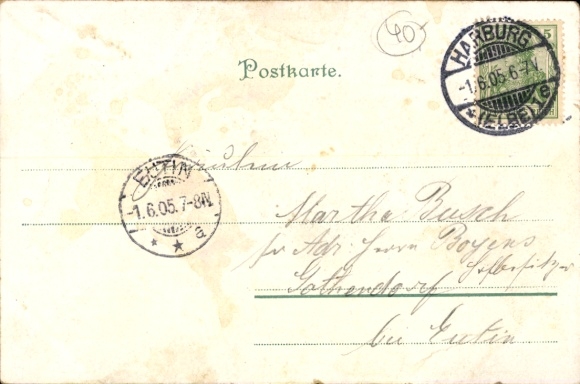 40
Postkarte.
5
HARBURG
-1.6.05.6-7N
* (ELBE) 1e
EUTIN
-1.6.05.7-8N.
* * a
Fräulein
Martha Busch
pr Adr. Herrn Boyens
Hofbesitzer
Gothendorf
bei Eutin